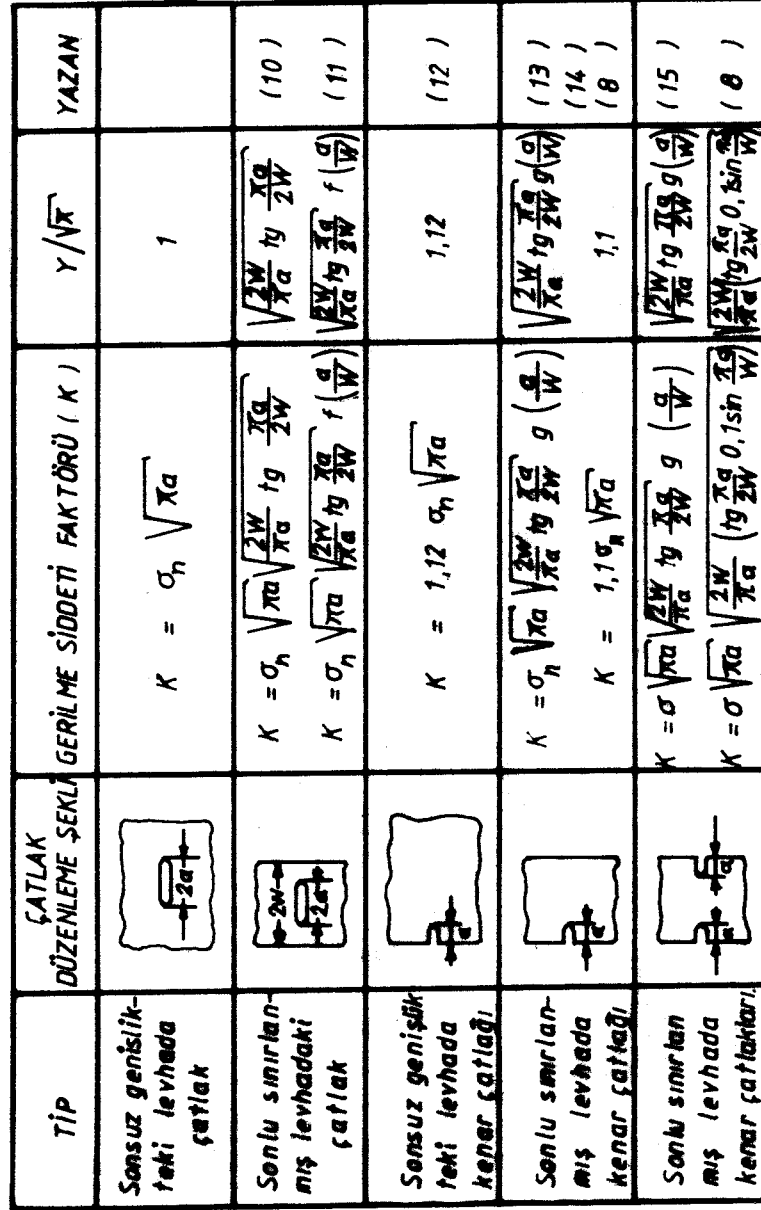 TİP
ÇATLAK
DÜZENLEME ŞEKLİ
GERİLME SİDDETİ FAKTÖRÜ ( K )
Y/√π
YAZAN
Sonsuz genislik-
teki levhada
çatlak
2a
K = σn √πa
1
Sonlu sınırlan-
mış levhadaki
çatlak
2w
2a
K = σn √πa √2W/πa tg πa/2W
√2W/πa tg πa/2W
(10 )
K = σn √πa √2W/πa tg πa/2W f (a/W)
√2W/πa tg πa/2W f (a/W)
(11 )
Sonsuz genişlik
teki levhada
kenar çatlağı
a
K = 1,12 σn √πa
1,12
(12 )
Sonlu sınırlan-
mış levhada
kenar çatlağı
a
K = σn √πa √2W/πa tg πa/2W g (a/W)
√2W/πa tg πa/2W g(a/W)
(13 )
(14 )
K = 1,1 σn √πa
1,1
(8 )
Sonlu sınırlan
mış levhada
kenar çatlakları.
a
a
K = σ √πa √2W/πa tg πa/2W g (a/W)
√2W/πa tg πa/2W g(a/W)
(15 )
K = σ √πa √2W/πa (tg πa/2W 0,1sin πa/W)
√2W/πa (tg πa/2W 0,1sin πa/W)
( 8 )